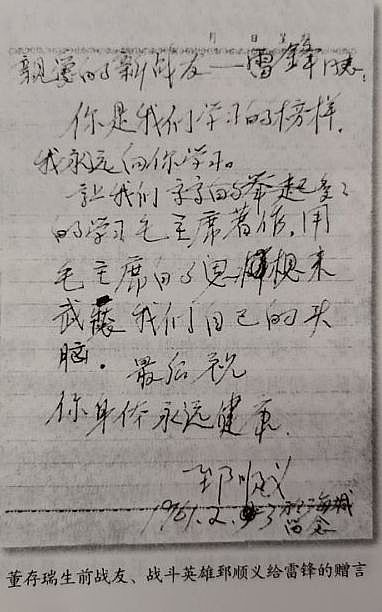 月 日 星期
亲爱的新战友——雷锋同志:
你是我们学习的榜样,
我永远向你学习。
让我们
的学习毛主席著作,用
毛主席的思想来
武装我们自己的头
脑。最后祝
你身体永远健康。
郅顺义
1961.2. 3 于海城
留念
董存瑞生前战友、战斗英雄郅顺义给雷锋的赠言